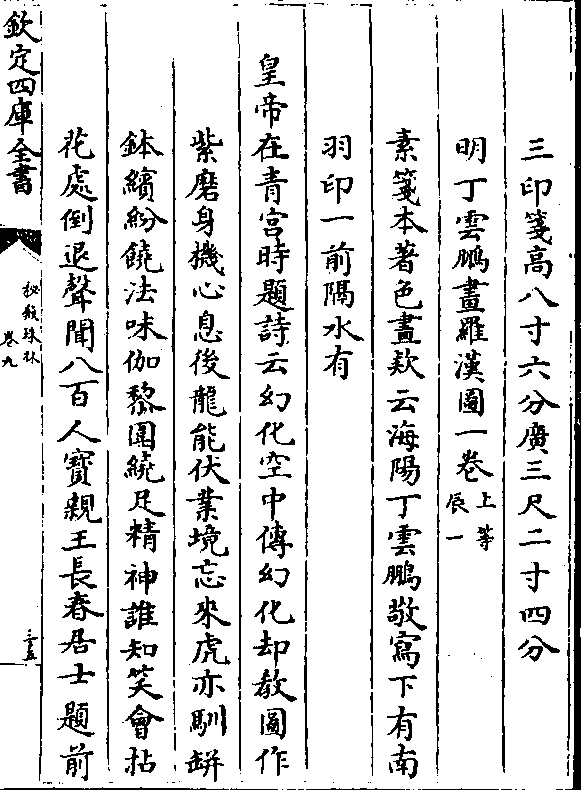 三印箋高八寸六分廣三尺二寸四分
明丁雲鵬畫羅漢圖一卷上等辰一
素箋本著色畫欵云海陽丁雲鵬敬寫下有南
羽印一前隔水有
皇帝在青宮時題詩云幻化空中傳幻化却教圖作
紫磨身機心息後龍能伏業境忘來虎亦馴缾
鉢繽紛饒法味伽黎圍繞足精神誰知笑會拈
花處倒退聲聞八百人寶親王長春居士題前
欽定四庫全書
秘殿珠林
卷九